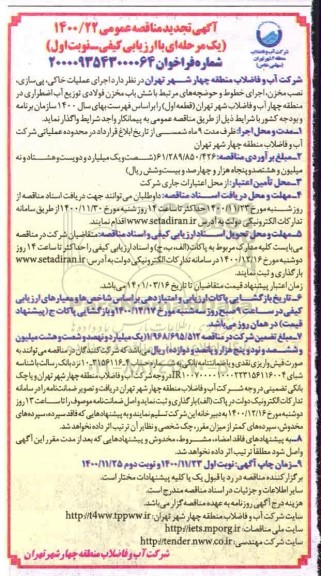 آگهی تجدید مناقصه عمومی ۱۴۰۰/۲۲
(یک مرحله‌ای با ارزیابی کیفی-نوبت اول)
شماره فراخوان ۲۰۰۰۰۹۳۵۴۳۰۰۰۰۶۴
شرکت آب و فاضلاب
منطقه ۴ شهر تهران
(سهامی خاص)
شرکت آب و فاضلاب منطقه چهار شهر تهران در نظر دارد اجرای عملیات خاکی، پی‌سازی،
نصب مخزن، اجرای خطوط و حوضچه‌های مرتبط با شش باب مخزن فولادی توزیع آب اضطراری در
منطقه چهار آب و فاضلاب شهر تهران (قطعه اول) را براساس فهرست بهای سال ۱۴۰۰ سازمان برنامه
و بودجه کشور با شرایط ذیل از طریق مناقصه عمومی به پیمانکار واجد شرایط واگذار نماید.
۱-مدت و محل اجرا: ظرف مدت ۹ ماه شمسی از تاریخ ابلاغ قرارداد در محدوده عملیاتی شرکت
آب و فاضلاب منطقه چهار شهر تهران
۲-مبلغ برآوردی مناقصه: ۶۱/۲۸۹/۸۵۰/۴۲۶(شصت و یک میلیارد و دویست و هشتاد و نه
میلیون و هشتصد و پنجاه هزار و چهارصد و بیست و شش ریال)
۳-محل تأمین اعتبار: از محل اعتبارات جاری شرکت
۴-مهلت و محل دریافت اسناد مناقصه: داوطلبان می‌توانند جهت دریافت اسناد مناقصه از
روز شنبه مورخ ۱۴۰۰/۱۱/۲۳ حداکثر تا ساعت ۱۴ روز شنبه مورخ ۱۴۰۰/۱۱/۳۰ از طریق سامانه
تدارکات الکترونیکی دولت به آدرس www.setadiran.ir اقدام نمایند.
۵-مهلت و محل تحویل اسناد ارزیابی کیفی و اسناد مناقصه: متقاضیان شرکت در مناقصه
می‌بایست کلیه مدارک مربوط به پاکات (الف، ب، ج) و اسناد ارزیابی کیفی را حداکثر تا ساعت ۱۴ روز
دوشنبه مورخ ۱۴۰۰/۱۲/۱۶ در سامانه تدارکات الکترونیکی دولت به آدرس: www.setadiran.ir
بارگذاری و ثبت نمایند.
زمان اعتبار پیشنهاد قیمت متقاضیان تا تاریخ ۱۴۰۱/۰۳/۱۶ می‌باشد.
۶-تاریخ بازگشایی پاکات ارزیابی و امتیازدهی براساس شاخص‌ها و معیارهای ارزیابی
کیفی در ساعت ۹ صبح روز سه‌شنبه مورخ ۱۴۰۰/۱۲/۱۷ و بازگشایی پاکات ج (پیشنهاد
قیمت) در همان روز می‌باشد.
۷-مبلغ تضمین شرکت در مناقصه ۱/۹۶۸/۶۹۵/۵۱۲(یک میلیارد و نهصد و شصت و هشت میلیون
و ششصد و نود و پنج هزار و پانصد و دوازده) ریال می‌باشد که شرکت‌کنندگان در مناقصه می‌توانند به
شرکت آب و فاضلاب منطقه چهار شهر تهران و یا چک
بانکی تضمینی در وجه شرکت آب و فاضلاب منطقه چهار شهر تهران دریافت و تصویر ضمانتنامه را در سامانه
تدارکات الکترونیک دولت در پاکت (الف) بارگذاری و ثبت نماید و اصل ضمانتنامه موصوف را تا ساعت ۱۳ روز
دوشنبه مورخ ۱۴۰۰/۱۲/۱۶ به دبیرخانه این شرکت تسلیم نمایند و به پیشنهادهایی که فاقد سپرده، سپرده‌های
مخدوش، سپرده‌های کمتر از میزان مقرر، چک شخصی و نظایر آن ترتیب اثر داده نخواهد شد.
۸-به پیشنهادهای فاقد امضاء، مشروط، مخدوش و پیشنهادهایی که بعد از مدت مقرر این آگهی
واصل شود مطلقاً ترتیب اثر داده نخواهد شد.
۹-زمان چاپ آگهی: نوبت اول ۱۴۰۰/۱۱/۲۳ و نوبت دوم ۱۴۰۰/۱۱/۲۵
برگزارکننده مناقصه در رد یا قبول یک یا کلیه پیشنهادات مختار است.
سایر اطلاعات و جزئیات در اسناد مناقصه مندرج است.
هزینه درج آگهی روزنامه به عهده مناقصه گزار می‌باشد.
سایت شرکت آب و فاضلاب منطقه چهار شهر تهران: http://t4ww.tppww.ir
سایت ملی مناقصات: http://iets.mporg.ir
سایت شرکت مهندسی: http://tender.nww.co.ir
شرکت آب و فاضلاب منطقه چهار شهر تهران